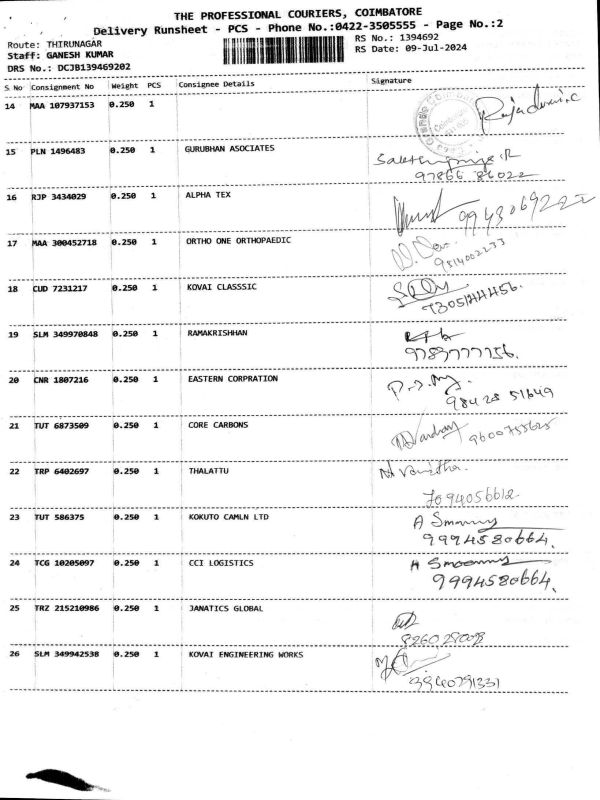 THE PROFESSIONAL COURIERS, COIMBATORE
Delivery Runsheet - PCS - Phone No.:0422-3505555 - Page No.:2
Route: THIRUNAGAR RS No.: 1394692
Staff: GANESH KUMAR RS Date: 09-Jul-2024
DRS No.: DCJB139469202
S No Consignment No Weight PCS Consignee Details Signature
14 MAA 107937153 0.250 1
15 PLN 1496483 0.250 1 GURUBHAN ASOCIATES
97866 86022
16 RJP 3434029 0.250 1 ALPHA TEX
17 MAA 300452718 0.250 1 ORTHO ONE ORTHOPAEDIC
9514002233
18 CUD 7231217 0.250 1 KOVAI CLASSSIC
19 SLM 349970848 0.250 1 RAMAKRISHHAN
20 CNR 1807216 0.250 1 EASTERN CORPRATION
98428 51649
21 TUT 6873509 0.250 1 CORE CARBONS
9600755625
22 TRP 6402697 0.250 1 THALATTU
7094056612
23 TUT 586375 0.250 1 KOKUTO CAMLN LTD
9994580664.
24 TCG 10205097 0.250 1 CCI LOGISTICS
9994580664.
25 TRZ 215210986 0.250 1 JANATICS GLOBAL
26 SLM 349942538 0.250 1 KOVAI ENGINEERING WORKS